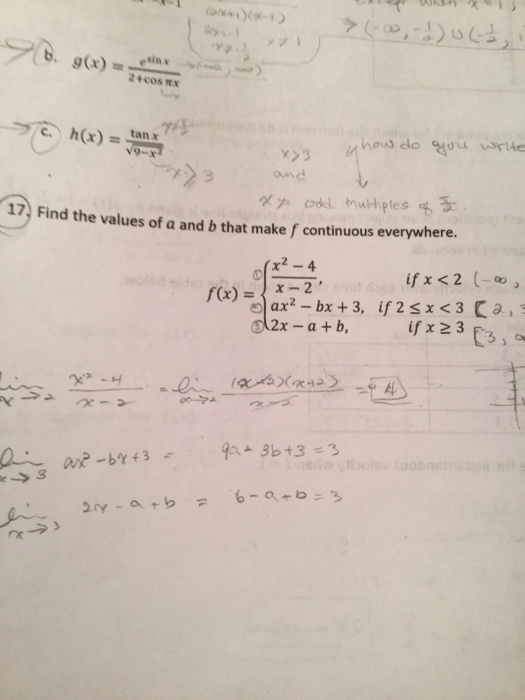 (2x+1)(x-1)
b. g(x) = e^(sin x) / (2+cos πx)
c. h(x) = tan x / √(9-x²)
x>3 how do you write
and
x ≠ odd multiples of π/2
17. Find the values of a and b that make f continuous everywhere.
① (x² − 4)/(x − 2), if x < 2 (-∞,
f(x) = ② ax² − bx + 3, if 2 ≤ x < 3 [2, 3
③ 2x − a + b, if x ≥ 3 [3, ∞
lim x→2 (x²-4)/(x-2) = lim x→2 (x-2)(x+2)/(x-2) = 4
lim x→3 ax²-bx+3 = 9a-3b+3 = 3
lim x→3 2x-a+b = 6-a+b = 3